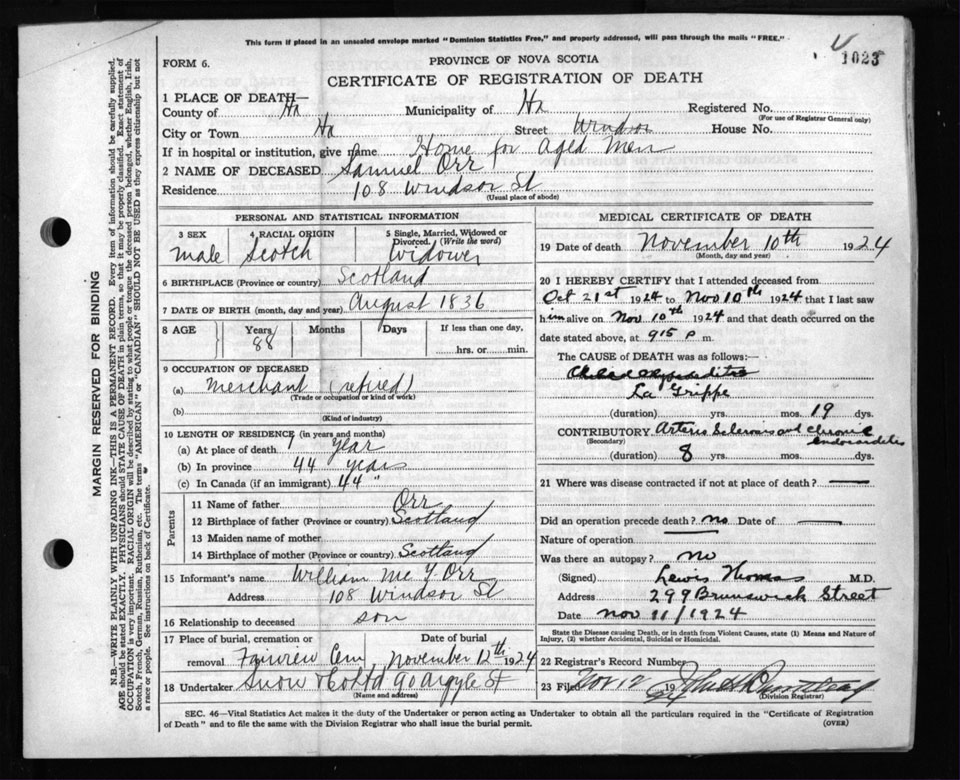 This form if placed in an unsealed envelope marked "Dominion Statistics Free," and properly addressed, will pass through the mails "FREE."
1023
FORM 6.
PROVINCE OF NOVA SCOTIA
CERTIFICATE OF REGISTRATION OF DEATH
1 PLACE OF DEATH—
County of Hx Municipality of Hx Registered No.
(For use of Registrar General only)
City or Town Hx Street Windsor House No.
If in hospital or institution, give name Home for Aged Men
2 NAME OF DECEASED Samuel Orr
Residence 108 Windsor St
(Usual place of abode)
PERSONAL AND STATISTICAL INFORMATION
3 SEX 4 RACIAL ORIGIN 5 Single, Married, Widowed or Divorced. (Write the word)
male Scotch Widower
6 BIRTHPLACE (Province or country) Scotland
7 DATE OF BIRTH (month, day and year) August 1836
8 AGE Years Months Days If less than one day,
88 hrs. or min.
9 OCCUPATION OF DECEASED
(a) Merchant (retired)
(Trade or occupation or kind of work)
(b)
(Kind of industry)
10 LENGTH OF RESIDENCE (in years and months)
(a) At place of death 1 year
(b) In province 44 years
(c) In Canada (if an immigrant) 44 "
Parents
11 Name of father Orr
12 Birthplace of father (Province or country) Scotland
13 Maiden name of mother
14 Birthplace of mother (Province or country) Scotland
15 Informant's name William Mc Y. Orr
Address 108 Windsor St
16 Relationship to deceased son
17 Place of burial, cremation or removal Date of burial
Fairview Cem November 12th 1924
18 Undertaker Snow & Co Ltd 90 Argyle St
(Name and address)
MEDICAL CERTIFICATE OF DEATH
19 Date of death November 10th 1924
(Month, day and year)
20 I HEREBY CERTIFY that I attended deceased from
Oct 21st 1924 to Nov 10th 1924 that I last saw
him alive on Nov 10th 1924 and that death occurred on the
date stated above, at 915 P m.
The CAUSE of DEATH was as follows:—
La Grippe
(duration) yrs. mos. 19 dys.
CONTRIBUTORY Arterio Sclerosis and chronic
(Secondary) endocarditis
(duration) 8 yrs. mos. dys.
21 Where was disease contracted if not at place of death? —
Did an operation precede death? no Date of —
Nature of operation
Was there an autopsy? no
(Signed) Lewis Thomas M.D.
Address 299 Brunswick Street
Date Nov 11/1924
State the Disease causing Death, or in death from Violent Causes, state (1) Means and Nature of
Injury, (2) whether Accidental, Suicidal or Homicidal.
22 Registrar's Record Number
23 Filed Nov 12 19
(Division Registrar)
SEC. 46—Vital Statistics Act makes it the duty of the Undertaker or person acting as Undertaker to obtain all the particulars required in the "Certificate of Registration
of Death" and to file the same with the Division Registrar who shall issue the burial permit. (OVER)
MARGIN RESERVED FOR BINDING
N.B.—WRITE PLAINLY WITH UNFADING INK—THIS IS A PERMANENT RECORD. Every item of information should be carefully supplied.
AGE should be stated EXACTLY. PHYSICIANS should STATE CAUSE OF DEATH in plain terms, so that it may be properly classified. Exact statement of
OCCUPATION is very important. RACIAL ORIGIN will be described by stating to what people or tongue the deceased person belonged, whether English, Irish,
Scotch, French, German, Russian, Ruthenian, etc. The terms "AMERICAN" or "CANADIAN" SHOULD NOT BE USED as they express citizenship but not
a race or people. See instructions on back of Certificate.